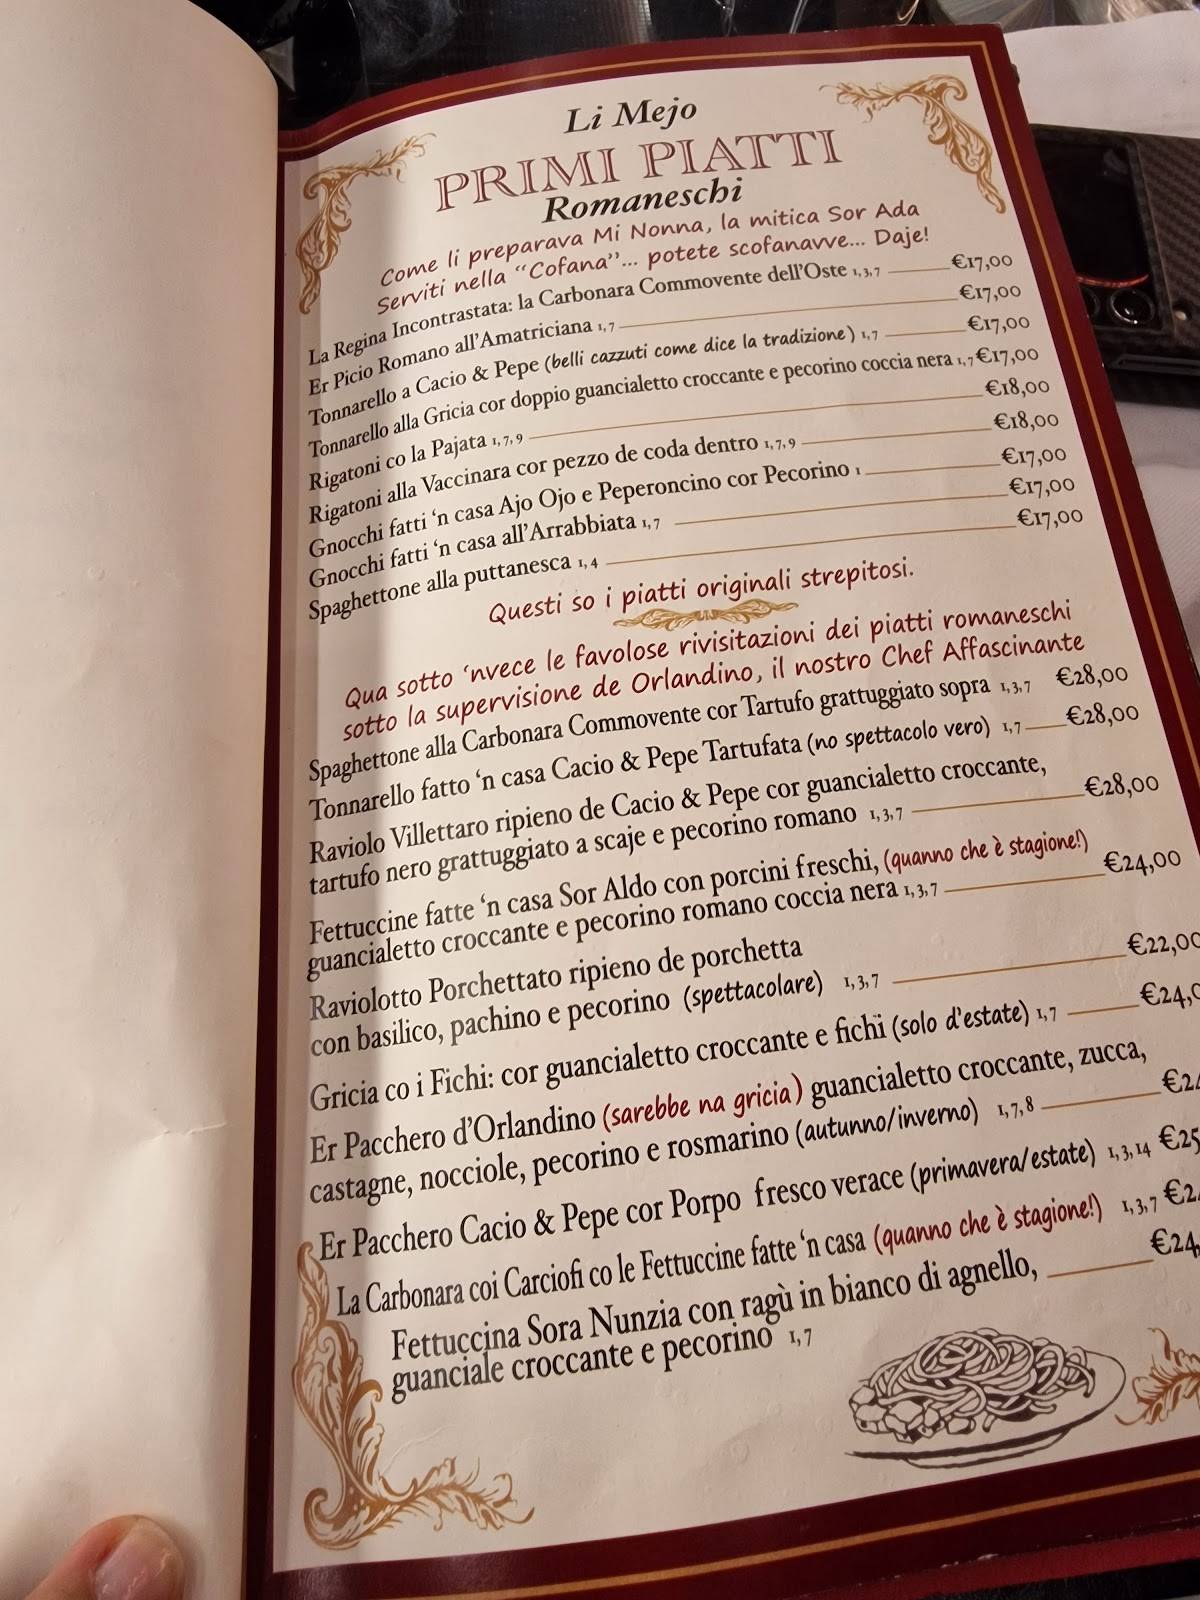 Li Mejo
PRIMI PIATTI
Romaneschi
Come li preparava Mi Nonna, la mitica Sor Ada
Serviti nella “Cofana”... potete scofanavve... Daje!
La Regina Incontrastata: la Carbonara Commovente dell'Oste 1,3,7 €17,00
Er Picio Romano all'Amatriciana 1,7 €17,00
Tonnarello a Cacio & Pepe (belli cazzuti come dice la tradizione) 1,7 €17,00
Tonnarello alla Gricia cor doppio guancialetto croccante e pecorino coccia nera 1,7 €17,00
Rigatoni co la Pajata 1,7,9 €18,00
Rigatoni alla Vaccinara cor pezzo de coda dentro 1,7,9 €18,00
Gnocchi fatti ‘n casa Ajo Ojo e Peperoncino cor Pecorino 1 €17,00
Gnocchi fatti ‘n casa all'Arrabbiata 1,7 €17,00
Spaghettone alla puttanesca 1,4 €17,00
Questi so i piatti originali strepitosi.
Qua sotto ‘nvece le favolose rivisitazioni dei piatti romaneschi
sotto la supervisione de Orlandino, il nostro Chef Affascinante
Spaghettone alla Carbonara Commovente cor Tartufo grattuggiato sopra 1,3,7 €28,00
Tonnarello fatto ‘n casa Cacio & Pepe Tartufata (no spettacolo vero) 1,7 €28,00
Raviolo Villettaro ripieno de Cacio & Pepe cor guancialetto croccante,
tartufo nero grattuggiato a scaje e pecorino romano 1,3,7 €28,00
Fettuccine fatte ‘n casa Sor Aldo con porcini freschi, (quanno che è stagione!)
guancialetto croccante e pecorino romano coccia nera 1,3,7 €24,00
Raviolotto Porchettato ripieno de porchetta
con basilico, pachino e pecorino (spettacolare) 1,3,7 €22,00
Gricia co i Fichi: cor guancialetto croccante e fichi (solo d'estate) 1,7 €24,0
Er Pacchero d'Orlandino (sarebbe na gricia) guancialetto croccante, zucca,
castagne, nocciole, pecorino e rosmarino (autunno/inverno) 1,7,8 €2
Er Pacchero Cacio & Pepe cor Porpo fresco verace (primavera/estate) 1,3,14 €25
La Carbonara coi Carciofi co le Fettuccine fatte ‘n casa (quanno che è stagione!) 1,3,7 €2
Fettuccina Sora Nunzia con ragù in bianco di agnello, €24,
guanciale croccante e pecorino 1,7